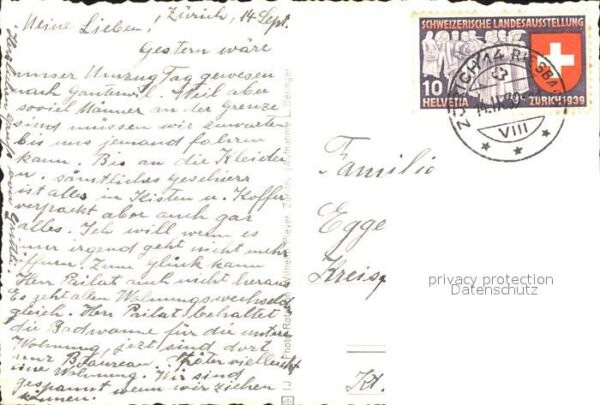 Zürich, 14 Sept.
Meine Lieben,
Gestern wäre
unser Umzug Tag gewesen
nach Gantewil. Weil aber
soviel Männer an der Grenze
sind müssen wir zuwarten
bis uns jemand fahren
kann. Bis an die Kleider
u. sämtliches Geschierr
ist alles in Kisten u. Koffer
verpackt aber auch gar
alles. Ich will wenn es
nur irgend geht nicht mehr
öffnen. Zum Glück kann
Herr Pailat auch nicht heraus
Es geht allen Wohnungswechseln
gleich. Herr Pailat behaltet
die Badwanne für die untere
Wohnung, jezt sind dort
nur Bofaureau. Später vielleicht
eine Wohnung. Wir sind
gespannt wenn wir ziehen
können.
SCHWEIZERISCHE LANDESAUSSTELLUNG
10
HELVETIA
ZÜRICH 1939
ZÜRICH 14 RIESB
14.IX.39
VIII
Familie
Egge
Kreis
Kt.
privacy protection
Datenschutz